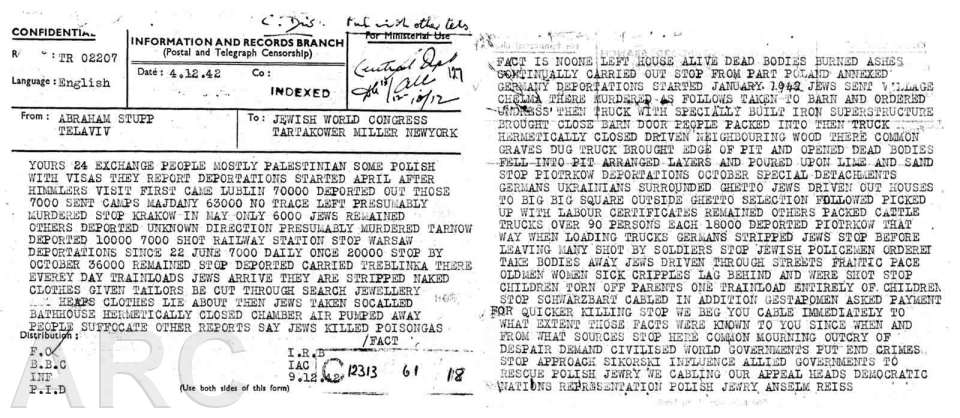 CONFIDENTIAL
TR 02207
Language: English
INFORMATION AND RECORDS BRANCH
(Postal and Telegraph Censorship)
Date: 4.12.42 Co:
INDEXED
For Ministerial Use
From: ABRAHAM STUPP
TELAVIV
To: JEWISH WORLD CONGRESS
TARTAKOWER MILLER NEWYORK
YOURS 24 EXCHANGE PEOPLE MOSTLY PALESTINIAN SOME POLISH
WITH VISAS THEY REPORT DEPORTATIONS STARTED APRIL AFTER
HIMMLERS VISIT FIRST CAME LUBLIN 70000 DEPORTED OUT THOSE
7000 SENT CAMPS MAJDANY 63000 NO TRACE LEFT PRESUMABLY
MURDERED STOP KRAKOW IN MAY ONLY 6000 JEWS REMAINED
OTHERS DEPORTED UNKNOWN DIRECTION PRESUMABLY MURDERED TARNOW
DEPORTED 10000 7000 SHOT RAILWAY STATION STOP WARSAW
DEPORTATIONS SINCE 22 JUNE 7000 DAILY ONCE 20000 STOP BY
OCTOBER 36000 REMAINED STOP DEPORTED CARRIED TREBLINKA THERE
EVEREY DAY TRAINLOADS JEWS ARRIVE THEY ARE STRIPPED NAKED
CLOTHES GIVEN TAILORS BE CUT THROUGH SEARCH JEWELLERY
HEAPS CLOTHES LIE ABOUT THEN JEWS TAKEN SOCALLED
BATHHOUSE HERMETICALLY CLOSED CHAMBER AIR PUMPED AWAY
PEOPLE SUFFOCATE OTHER REPORTS SAY JEWS KILLED POISONGAS
/FACT
Distribution:
F.O.
B.B.C
INF
P.I.D
(Use both sides of this form)
I.R.B
IAC
9.12.42
C 12313 61 18
ARC
FACT IS NOONE LEFT HOUSE ALIVE DEAD BODIES BURNED ASHES
CONTINUALLY CARRIED OUT STOP FROM PART POLAND ANNEXED
GERMANY DEPORTATIONS STARTED JANUARY 1942 JEWS SENT VILLAGE
CHELMA THERE MURDERED AS FOLLOWS TAKEN TO BARN AND ORDERED
UNDRESS THEN TRUCK WITH SPECIALLY BUILT IRON SUPERSTRUCTURE
BROUGHT CLOSE BARN DOOR PEOPLE PACKED INTO THEN TRUCK
HERMETICALLY CLOSED DRIVEN NEIGHBOURING WOOD THERE COMMON
GRAVES DUG TRUCK BROUGHT EDGE OF PIT AND OPENED DEAD BODIES
FELL INTO PIT ARRANGED LAYERS AND POURED UPON LIME AND SAND
STOP PIOTRKOW DEPORTATIONS OCTOBER SPECIAL DETACHMENTS
GERMANS UKRAINIANS SURROUNDED GHETTO JEWS DRIVEN OUT HOUSES
TO BIG BIG SQUARE OUTSIDE GHETTO SELECTION FOLLOWED PICKED
UP WITH LABOUR CERTIFICATES REMAINED OTHERS PACKED CATTLE
TRUCKS OVER 90 PERSONS EACH 18000 DEPORTED PIOTRKOW THAT
WAY WHEN LOADING TRUCKS GERMANS STRIPPED JEWS STOP BEFORE
LEAVING MANY SHOT BY SOLDIERS STOP JEWISH POLICEMEN ORDERED
TAKE BODIES AWAY JEWS DRIVEN THROUGH STREETS FRANTIC PACE
OLDMEN WOMEN SICK CRIPPLES LAG BEHIND AND WERE SHOT STOP
CHILDREN TORN OFF PARENTS ONE TRAINLOAD ENTIRELY OF CHILDREN
STOP SCHWARZBART CABLED IN ADDITION GESTAPOMEN ASKED PAYMENT
FOR QUICKER KILLING STOP WE BEG YOU CABLE IMMEDIATELY TO
WHAT EXTENT THOSE FACTS WERE KNOWN TO YOU SINCE WHEN AND
FROM WHAT SOURCES STOP HERE COMMON MOURNING OUTCRY OF
DESPAIR DEMAND CIVILISED WORLD GOVERNMENTS PUT END CRIMES
STOP APPROACH SIKORSKI INFLUENCE ALLIED GOVERNMENTS TO
RESCUE POLISH JEWRY WE CABLING OUR APPEAL HEADS DEMOCRATIC
NATIONS REPRESENTATION POLISH JEWRY ANSELM REISS